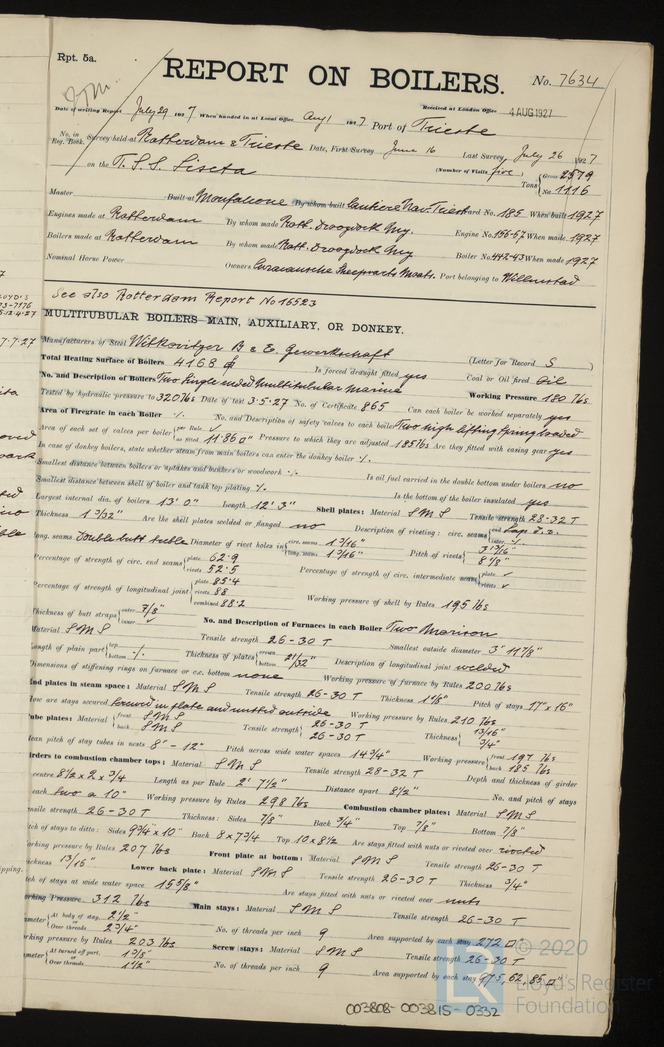 Rpt. 5a.
REPORT ON BOILERS.
No. 7634
Date of writing Report July 29 1927 When handed in at Local Office Aug 1 1927 Port of Trieste
Received at London Office 4 AUG 1927
No. in Reg. Book. Survey held at Rotterdam & Trieste Date, First Survey June 16 Last Survey July 26 1927
on the T.S.S. Liseta (Number of Visits five) Tons Gross 2579 Net 1116
Master Built at Monfalcone By whom built Cantiere Nav. Triest Yard No. 185 When built 1927
Engines made at Rotterdam By whom made Rott. Droogdock My. Engine No. 156-57 When made 1927
Boilers made at Rotterdam By whom made Rott. Droogdock My. Boiler No. 442-43 When made 1927
Nominal Horse Power Owners Curacaosche Scheepvaart Maats. Port belonging to Willemstad
See also Rotterdam Report No 16523
MULTITUBULAR BOILERS MAIN, AUXILIARY, OR DONKEY.
Manufacturers of Steel Witkovitzer B & E. Gewerkschaft
(Letter for Record S)
Total Heating Surface of Boilers 4168 Is forced draught fitted yes Coal or Oil fired Oil
No. and Description of Boilers Two Single ended Multitubular Marine Working Pressure 180 lbs
Tested by hydraulic pressure to 320 lbs Date of test 3.5.27 No. of Certificate 865 Can each boiler be worked separately yes
Area of Firegrate in each Boiler No. and Description of safety valves to each boiler Two high lifting Spring loaded
Area of each set of valves per boiler per Rule as fitted 11.86 Pressure to which they are adjusted 185 lbs Are they fitted with easing gear yes
In case of donkey boilers, state whether steam from main boilers can enter the donkey boiler
Smallest distance between boilers or uptakes and bunkers or woodwork Is oil fuel carried in the double bottom under boilers no
Smallest distance between shell of boiler and tank top plating Is the bottom of the boiler insulated yes
Largest internal dia. of boilers 13' 0" Length 12' 3" Shell plates: Material S M S Tensile strength 28-32 T
Thickness 1 3/32" Are the shell plates welded or flanged no Description of riveting: circ. seams end Lap inter.
long. seams Double butt treble Diameter of rivet holes in circ. seams 1 3/16" long. seams 1 3/16" Pitch of rivets 3 3/16" 8 1/8"
Percentage of strength of circ. end seams plate 62.9 rivets 52.5 Percentage of strength of circ. intermediate seam plate rivets
Percentage of strength of longitudinal joint plate 85.4 rivets 88 combined 88.2 Working pressure of shell by Rules 195 lbs
Thickness of butt straps outer 7/8" inner No. and Description of Furnaces in each Boiler Two Morison
Material S M S Tensile strength 26-30 T Smallest outside diameter 3' 11 7/8"
Length of plain part top bottom Thickness of plates crown bottom 21/32" Description of longitudinal joint welded
Dimensions of stiffening rings on furnace or c.c. bottom none Working pressure of furnace by Rules 200 lbs
End plates in steam space: Material S M S Tensile strength 26-30 T Thickness 1 1/8" Pitch of stays 17" x 16"
How are stays secured screwed in plate and nutted outside Working pressure by Rules 210 lbs
Tube plates: Material front S M S back S M S Tensile strength 26-30 T 26-30 T Thickness 13/16" 3/4"
Mean pitch of stay tubes in nests 8" - 12" Pitch across wide water spaces 14 3/4" Working pressure front 197 lbs back 185 lbs
Girders to combustion chamber tops: Material S M S Tensile strength 28-32 T Depth and thickness of girder
centre 8 1/2 x 2 x 3/4 Length as per Rule 2' 7 1/2" Distance apart 8 1/2" No. and pitch of stays
each two a 10" Working pressure by Rules 298 lbs Combustion chamber plates: Material S M S
Tensile strength 26-30 T Thickness: Sides 7/8" Back 3/4" Top 7/8" Bottom 7/8"
Pitch of stays to ditto: Sides 9 3/4 x 10" Back 8 x 7 3/4 Top 10 x 8 1/2 Are stays fitted with nuts or riveted over riveted
Working pressure by Rules 207 lbs Front plate at bottom: Material S M S Tensile strength 26-30 T
Thickness 13/16" Lower back plate: Material S M S Tensile strength 26-30 T Thickness 3/4"
Pitch of stays at wide water space 15 5/8" Are stays fitted with nuts or riveted over nuts
Working Pressure 312 lbs Main stays: Material S M S Tensile strength 26-30 T
Diameter At body of stay, or Over threads 2 1/2" 2 3/4" No. of threads per inch 9 Area supported by each stay 272
Working pressure by Rules 203 lbs Screw stays: Material S M S Tensile strength 26-30 T
Diameter At turned off part, or Over threads 1 3/8" 1 1/2" No. of threads per inch 9 Area supported by each stay 97.5, 62, 85
© 2020
Lloyd's Register
Foundation
003808-003815-0332